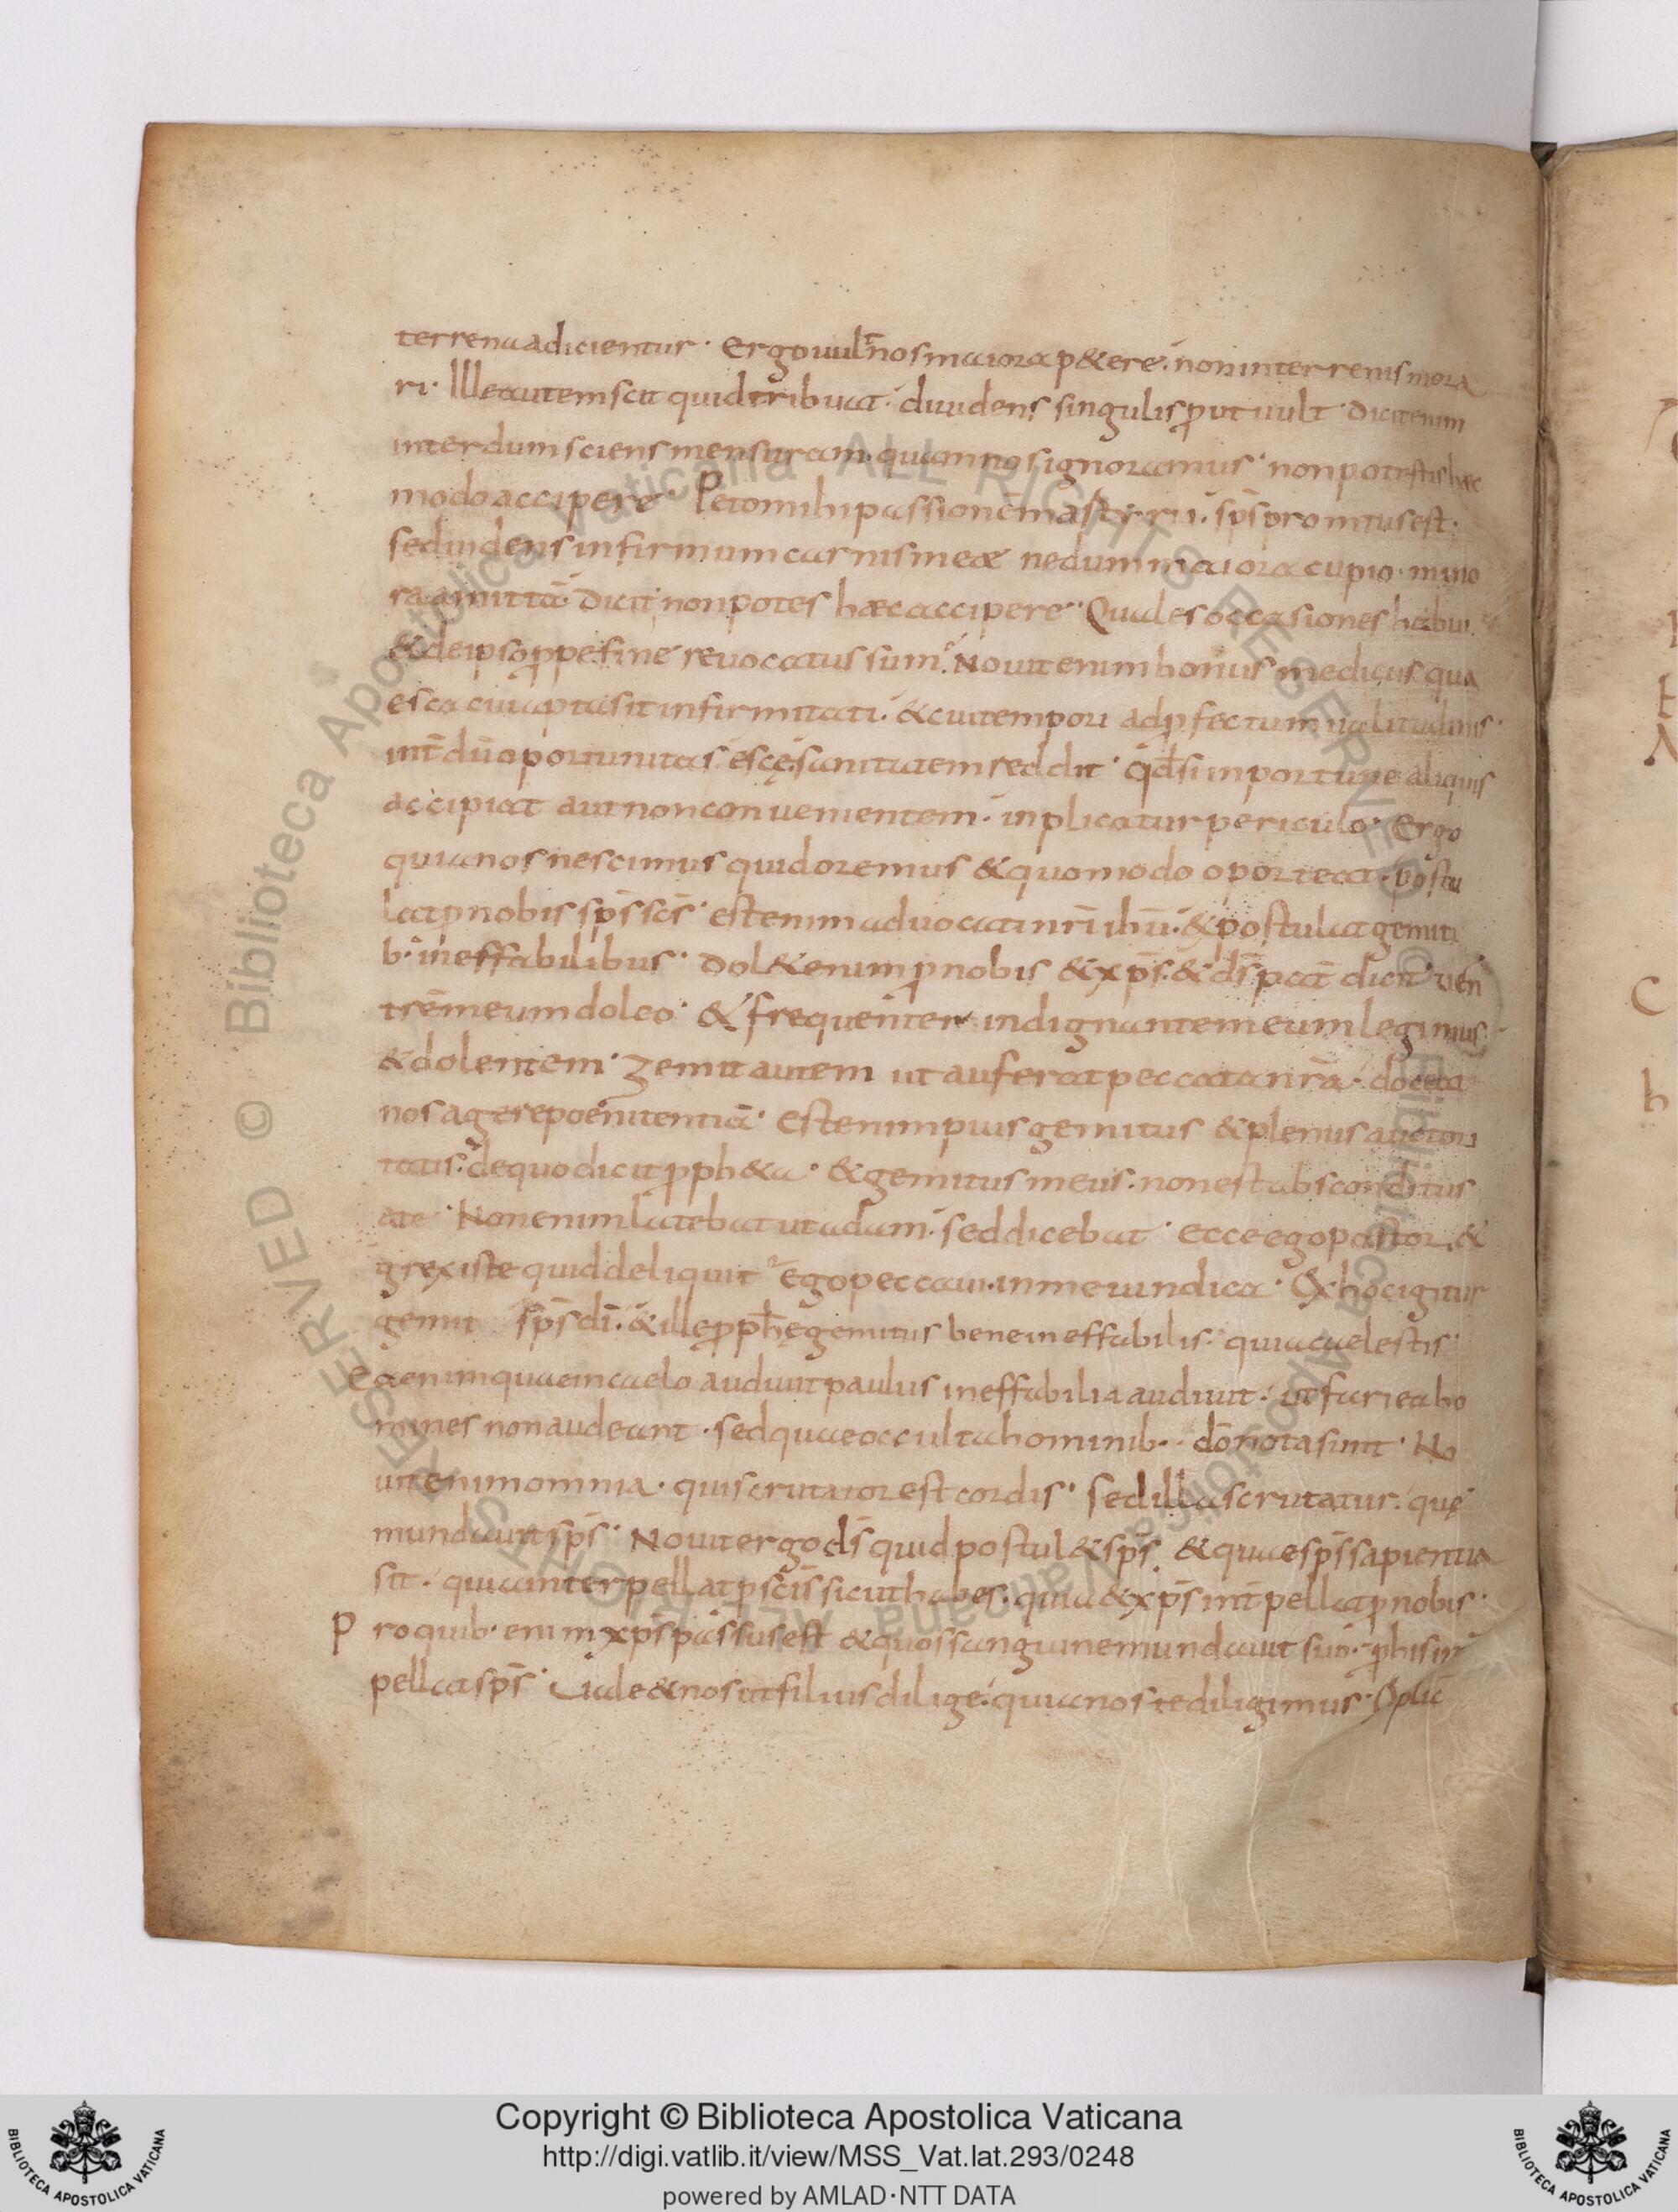 terrena adicientur· Ergo uult nos maiora p&ere· non in terrenis mora
ri· Ille autem scit quid tribuat· diuidens singulis ꝓut uult· Dicit enim
interdum sciens mensuram· quam nos ignoramus· non potestis haec
modo accipere· Peto mihi passionē martyrii· sp̄s promtus est·
sed uidens infirmum carnis meae ne dum maiora cupio· mino
ra amittā· Dicit non potes haec accipere· Quales occasiones habui
& de ipso ꝓpe fine reuocatus sum· Nouit enim bonus medicus qua
esca cui apta sit infirmitati· & cui tempori ad ꝓfectum ualitudinis·
int̄dū oportunitas escę sanitatem reddit· qđ si inportune aliquis
accipiat aut non conuenientem· inplicatur periculo· Ergo
quia nos nescimus quid oremus & quomodo oporteat· postu
lat ꝓ nobis sp̄s sc̄s· est enim aduocati nr̄i ih̄u· & postulat gemiti
b· ineffabilibus· Dol& enim ꝓ nobis & xp̄s· & d̄s pat̄ dicit· uen
trēm eum doleo· & frequenter indignantem eum legimus·
& dolentem· Gemit autem ut auferat peccata nr̄a· doceat
nos agere poenitentiā· Est enim pius gemitus & plenus auctori
tatis· de quo dicit ꝓph&a· & gemitus meus· non est absconditus
a te· Non enim latebat ut adam· sed dicebat· ecce ego pastor· &
grex iste quid deliquit· Ego peccaui· in me uindica· Ex hoc igitur
gemit sp̄s d̄i· & ille ꝓph̄ę gemitus bene ineffabilis· quia caelestis·
Ea enim quae in caelo audiuit paulus ineffabilia audiuit· ut fari ea ho
mines non audeant· sed quae occulta hominib·· dō nota sunt· No
uit enim omnia· qui scrutator est cordis· sed illa scrutatur· quę
mundauit sp̄s· Nouit ergo d̄s quid postul& sp̄s & quae sp̄s sapientia
sit· quia interpellat ꝓ sc̄is sicut habes· quia & xp̄s int̄pellat ꝓ nobis·
Pro quib· enim xp̄s passus est & quos sanguine mundauit suo· ꝓ his int̄
pellat sp̄s· Uale & nos ut filius dilige· quia nos te diligimus· Explic̄
© Biblioteca Apostolica Vaticana ALL RIGHTS RESERVED © Biblioteca Apostolica Vaticana ALL RIGHTS RESERVED
BIBLIOTECA APOSTOLICA VATICANA
Copyright © Biblioteca Apostolica Vaticana
http://digi.vatlib.it/view/MSS_Vat.lat.293/0248
powered by AMLAD·NTT DATA
BIBLIOTECA APOSTOLICA VATICANA